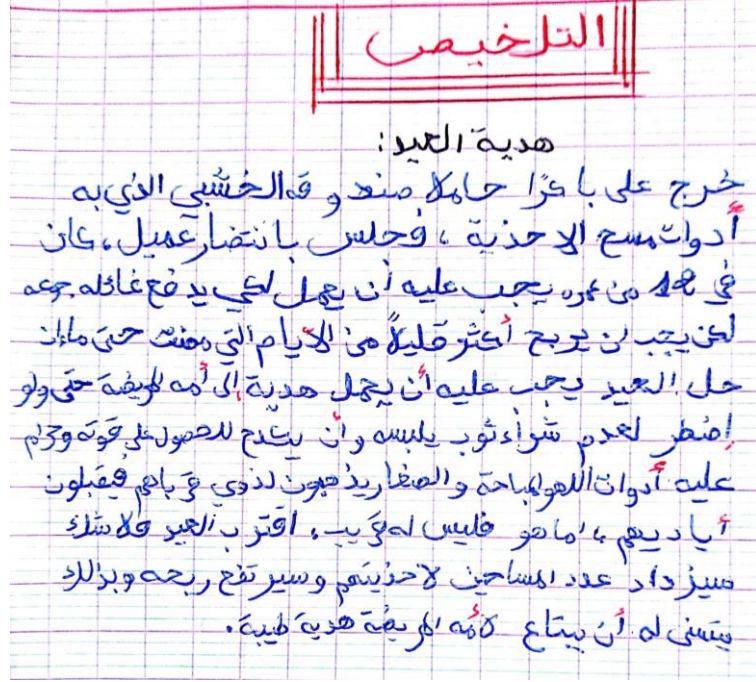 التلخيص
هدية العيد:
خرج على باكرًا حاملا صندوقه الخشبي الذي به
أدوات مسح الاحذية ، فجلس بانتضار عميل ، كان
في 12 من عمره يجب عليه أن يعمل لكي يدفع غائله جوعه
لكن يجب ان يربح أكثر قليلاً من الأيام التي مضت حتى ما إن
حل العيد يجب عليه أن يحمل هدية إلى أمه المريضة حتى ولو
إضطر لعدم شراء ثوب يلبسه وأن يكدح للحصول على قوته وحرام
عليه أدوات اللهو المباحة و الصغار يذهبون لذوي قرباهم فيقبلون
أياديهم ، اما هو فليس له قريب. اقترب العيد فلا شك
سيزداد عدد المساحين لاحذيتهم وسيرتفع ربحه وبذلك
يتسنى له أن يبتاع لأمه المريضة هدية طيبة.